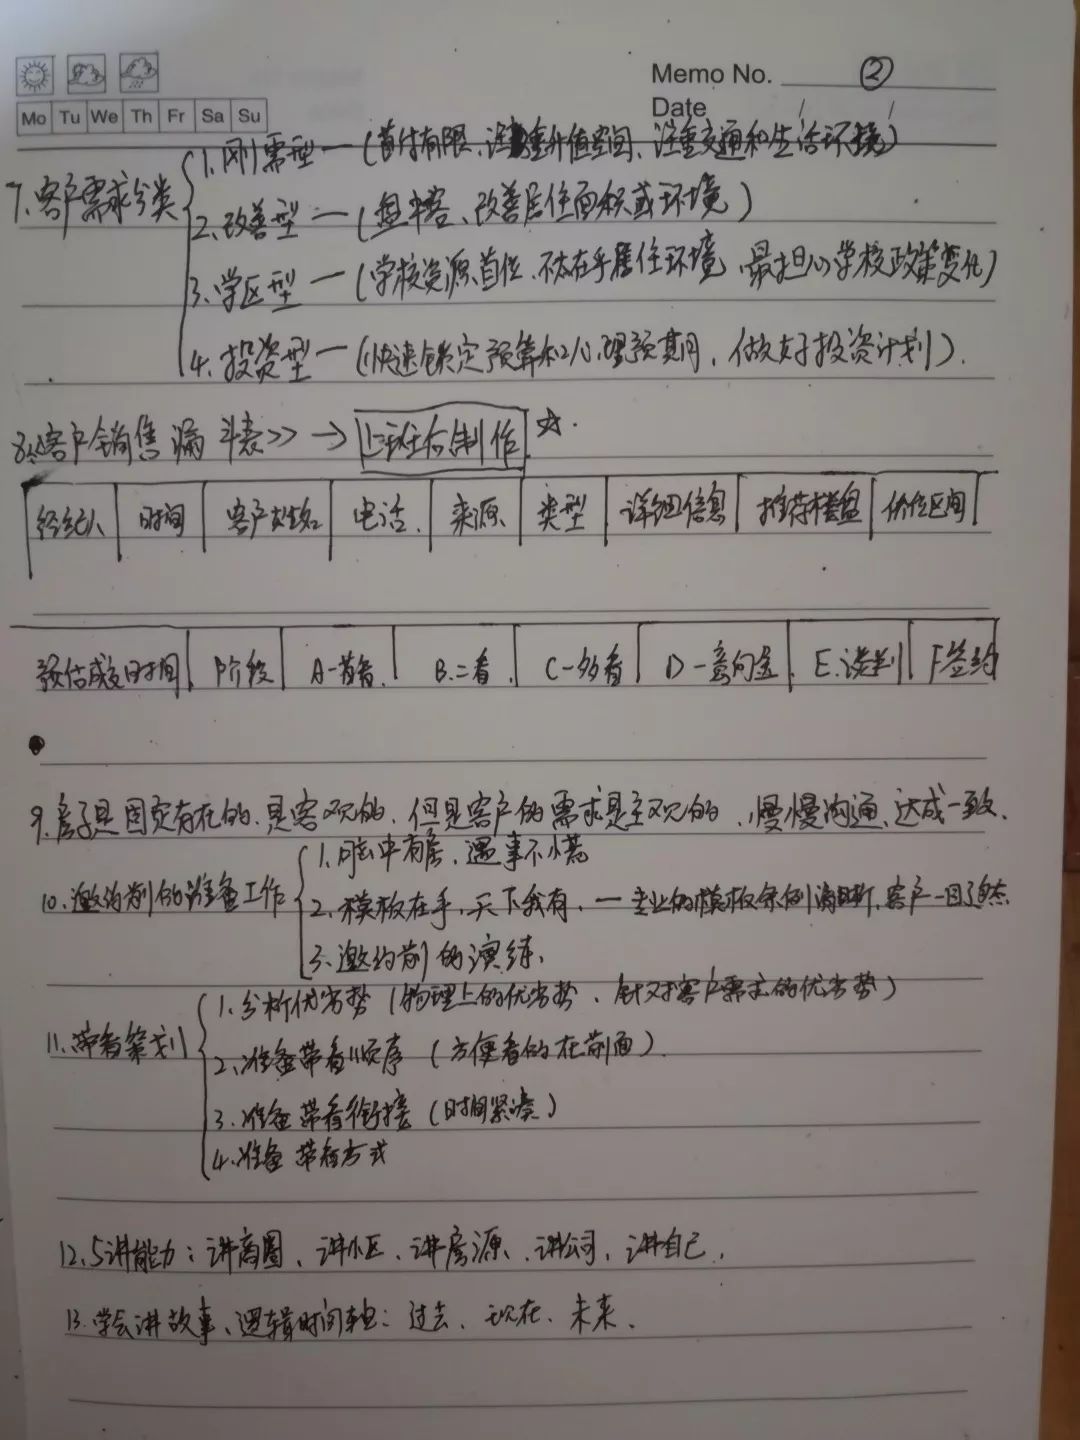 Memo No. ②
Mo Tu We Th Fr Sa Su
Date / /
7、客户需求分类
1、刚需型—(首付有限、注重升值空间、注重交通和生活环境)
2、改善型—(盘中客、改善居住面积或环境)
3、学区型—(学校资源首位、不太在乎居住环境、最担心学校政策变化)
4、投资型—(快速锁定预算和心理预期,做好投资计划).
8、《客户销售漏斗表》→ 上班后制作 ☆.
经纪人 时间 客户姓名 电话. 来源. 类型 详细信息 推荐楼盘 价位区间
预估成交时间 阶段 A-首看. B.二看. C-多看 D-意向金 E.谈判 F签约
9、房子是固定存在的、是客观的、但是客户的需求是主观的、慢慢沟通、达成一致.
10、邀约前的准备工作
1、脑中有房、遇事不慌
2、模板在手,天下我有,—专业的模板条例清晰、客户一目了然
3、邀约前的演练.
11、带看策划
1、分析优劣势(物理上的优劣势、针对客户需求的优劣势)
2、准备带看顺序(方便看的在前面).
3、准备带看衔接(时间紧凑)
4、准备带看方式
12、5讲能力:讲商圈、讲小区、讲房源、讲公司,讲自己.
13、学会讲故事、逻辑时间轴:过去、现在、未来.